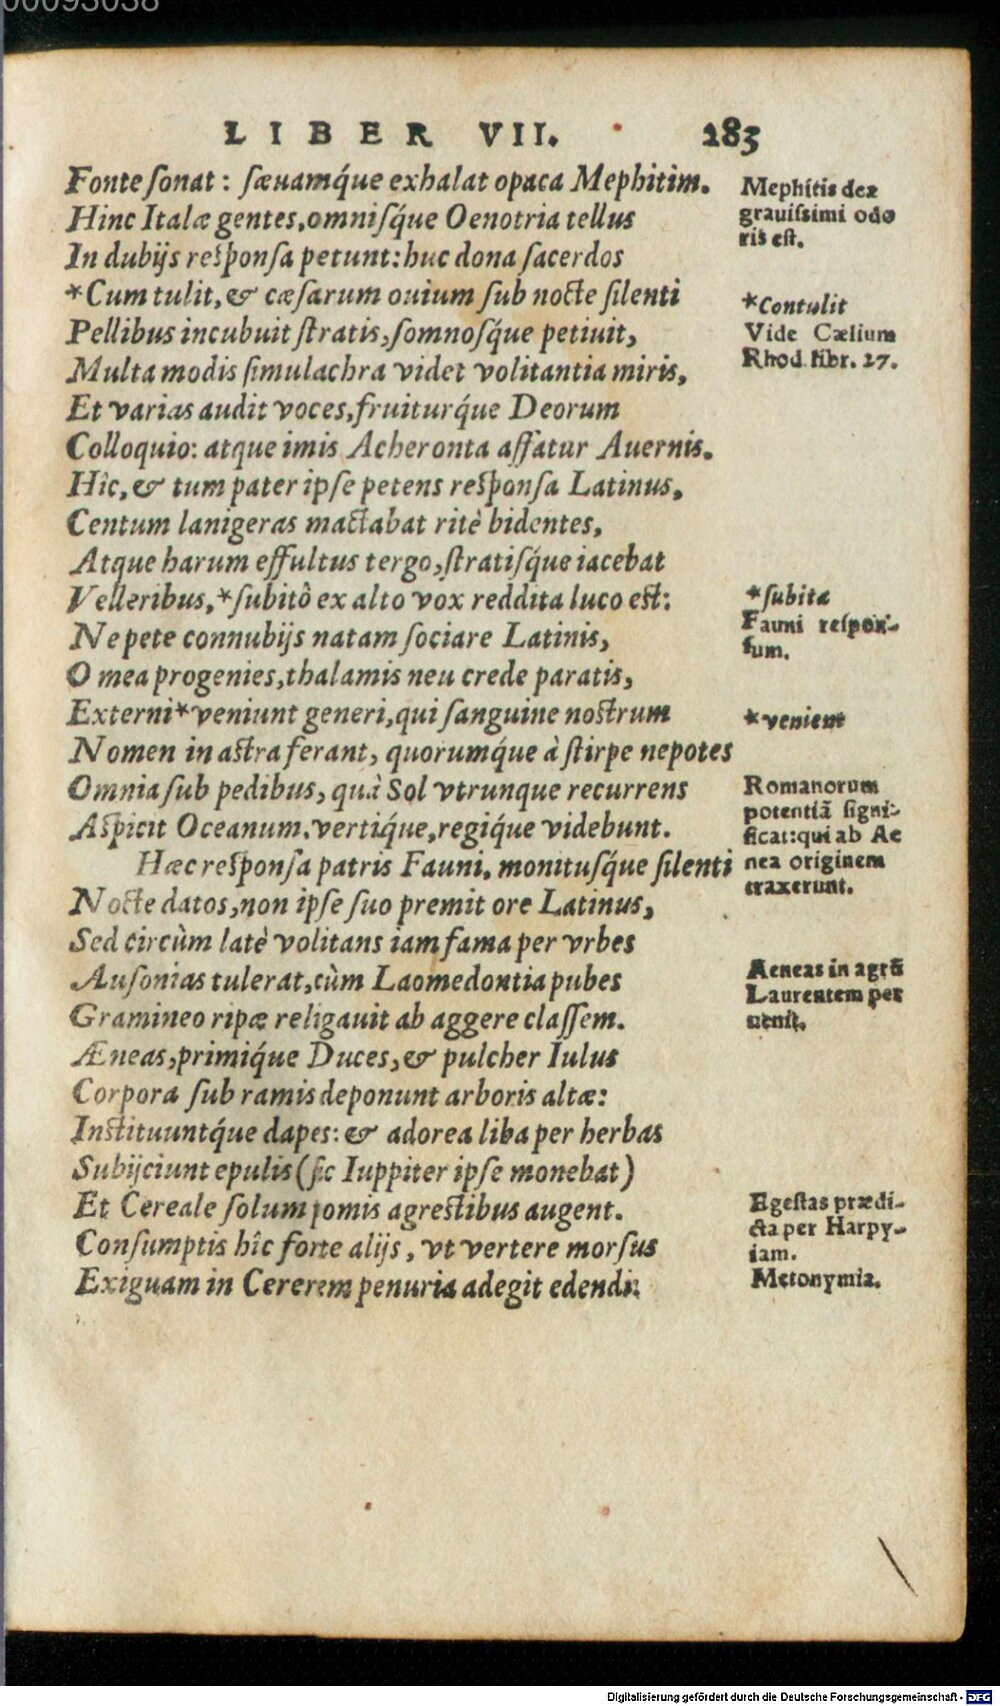 00093038
LIBER VII. 283
Fonte ſonat: ſæuamq́ue exhalat opaca Mephitim.
Hinc Italæ gentes, omniſq́ue Oenotria tellus
In dubijs reſponſa petunt: huc dona ſacerdos
*Cum tulit, & cæſarum ouium ſub nocte ſilenti
Pellibus incubuit ſtratis, ſomnoſq́ue petiuit,
Multa modis ſimulachra videt volitantia miris,
Et varias audit voces, fruiturq́ue Deorum
Colloquio: atque imis Acheronta affatur Auernis.
Hîc, & tum pater ipſe petens reſponſa Latinus,
Centum lanigeras mactabat ritè bidentes,
Atque harum effultus tergo, ſtratiſq́ue iacebat
Velleribus, *ſubitò ex alto vox reddita luco est:
Ne pete connubijs natam ſociare Latinis,
O mea progenies, thalamis neu crede paratis,
Externi *veniunt generi, qui ſanguine nostrum
Nomen in astra ferant, quorumq́ue à ſtirpe nepotes
Omnia ſub pedibus, quà Sol vtrunque recurrens
Aſpicit Oceanum, vertiq́ue, regiq́ue videbunt.
Hæc reſponſa patris Fauni, monituſq́ue ſilenti
Nocte datos, non ipſe ſuo premit ore Latinus,
Sed circùm latè volitans iam fama per vrbes
Auſonias tulerat, cùm Laomedontia pubes
Gramineo ripæ religauit ab aggere claſſem.
Æneas, primiq́ue Duces, & pulcher Iulus
Corpora ſub ramis deponunt arboris altæ:
Instituuntq́ue dapes: & adorea liba per herbas
Subijciunt epulis (ſic Iuppiter ipſe monebat)
Et Cereale ſolum pomis agrestibus augent.
Conſumptis hîc forte alijs, vt vertere morſus
Exiguam in Cererem penuria adegit edendi:
Mephitis dea
grauiſsimi odo
ris eſt.
*Contulit
Vide Cælium
Rhod. libr. 27.
*ſubita
Fauni reſpon-
ſum.
*venient
Romanorum
potentiã ſigni-
ficat: qui ab Ae
nea originem
traxerunt.
Aeneas in agrũ
Laurentem per
uenit.
Egeſtas prædi-
cta per Harpy-
iam.
Metonymia.
Digitalisierung gefördert durch die Deutsche Forschungsgemeinschaft - DFG